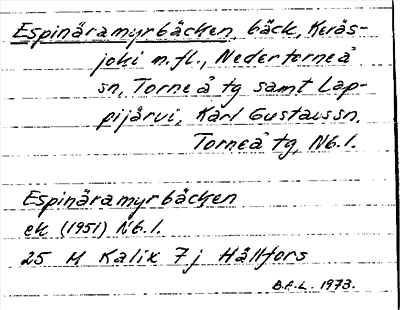 Espinäramyrbäcken, bäck, Keräs-
joki m.fl., Nedertorneå
sn, Torneå tg samt Lap-
pijärvi, Karl Gustavssn,
Torneå tg, Nb.l.
Espinäramyrbäcken
ek (1951) Nb.l.
25 M Kalix 7j Hällfors
B.A.L. 1973.